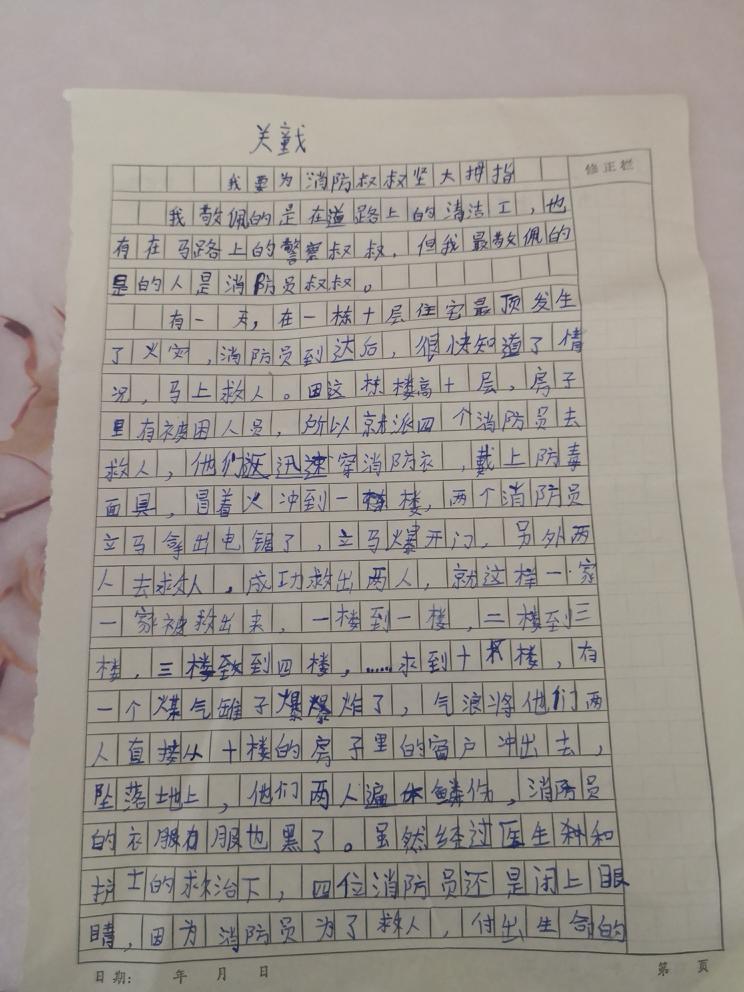 关童戈
我要为消防叔叔坚大拇指
修正栏
我敬佩的是在道路上的清洁工，也
有在马路上的警察叔叔，但我最敬佩的
是的人是消防员叔叔。
有一天，在一栋十层住宅最顶发生
了火灾，消防员到达后，很快知道了情
况，马上救人。因这栋楼高十层，房子
里有被困人员，所以就派四个消防员去
救人，他们迅速穿消防衣，戴上防毒
面具，冒着火冲到一楼，两个消防员
立马拿出电锯了，立马爆开门，另外两
人去救人，成功救出两人，就这样一家
一家被救出来，一楼到一楼，二楼到三
楼，三楼到四楼，……求到十楼，有
一个煤气罐子爆炸了，气浪将他们两
人直接从十楼的房子里的窗户冲出去，
坠落地上，他们两人遍体鳞伤，消防员
的衣服力服也黑了。虽然经过医生和
护士的救治下，四位消防员还是闭上眼
睛，因为消防员为了救人，付出生命的
日期： 年 月 日
第 页